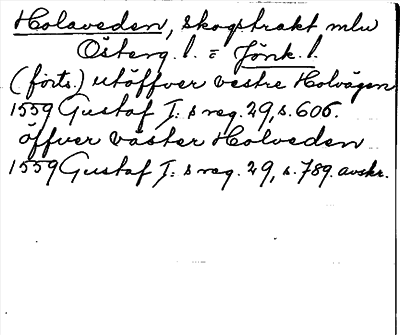 Holaveden, skogstrakt mlu
Österg. l. = Jönk. l.
(forts.) utöffver vestre Holvägen
1559 Gustaf I: s reg. 29, s. 606.
öffver väster Holveden
1559 Gustaf I: s reg. 29, s. 789. avskr.